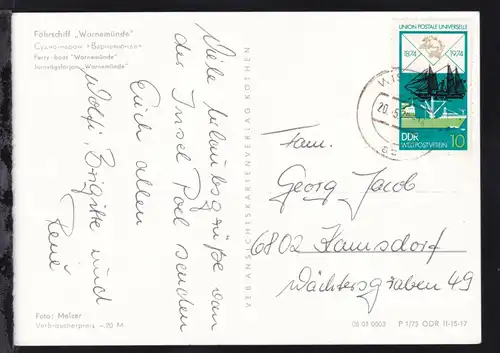 Fährschiff „Warnemünde“
Судно-паром «Варнемюнде»
Ferry-boat "Warnemünde"
Järnvägsfärjan „Warnemünde“
Viele Urlaubsgrüße von
der Insel Poel senden
Euch allen
Wolfi, Brigitte und
René
Foto: Melzer
Verbraucherpreis -,20 M
VEB ANSICHTSKARTENVERLAG KÖTHEN
UNION POSTALE UNIVERSELLE
1874 1974
DDR
WELTPOSTVEREIN 10
20.5.
Fam.
Georg Jacob
6802 Kamsdorf
Wächtersgraben 49
08 01 0003 P 1/75 DDR II-15-17